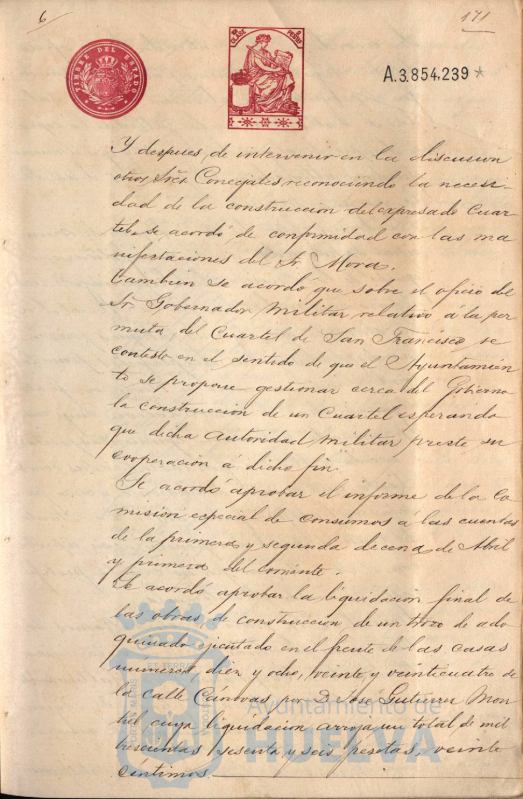 6
171
TIMBRE DEL ESTADO
A.3.854,239*
Y despues de intervenir en la discusion
otros Sres Concejales reconociendo la necesi-
dad de la construccion del expresado Cuar-
tel, se acordó de conformidad con las ma
nifestaciones del Sr Mora.
Tambien se acordó que sobre el oficio del
Sr Gobernador Militar relativo á la per
muta del Cuartel de San Francisco, se
conteste en el sentido de que el Ayuntamien
to se propone gestionar cerca del Gobierno
la construccion de un Cuartel esperando
que dicha autoridad militar preste su
cooperación á dicho fin.
Se acordó aprobar el informe de la Co
mision especial de consumos á las cuentas
de la primera y segunda decena de Abril
y primera del corriente.
Se acordó aprobar la liquidacion final de
las obras de construccion de un trozo de ado
quinado ejecutado en el frente de las casas
numeros diez y ocho, veinte y veinticuatro de
la calle Cánovas por D. Jose Gutierrez Mon
tiel cuya liquidacion arroja un total de mil
trescientas sesenta y seis pesetas, veinte
céntimos
Ayuntamiento de
HUELVA